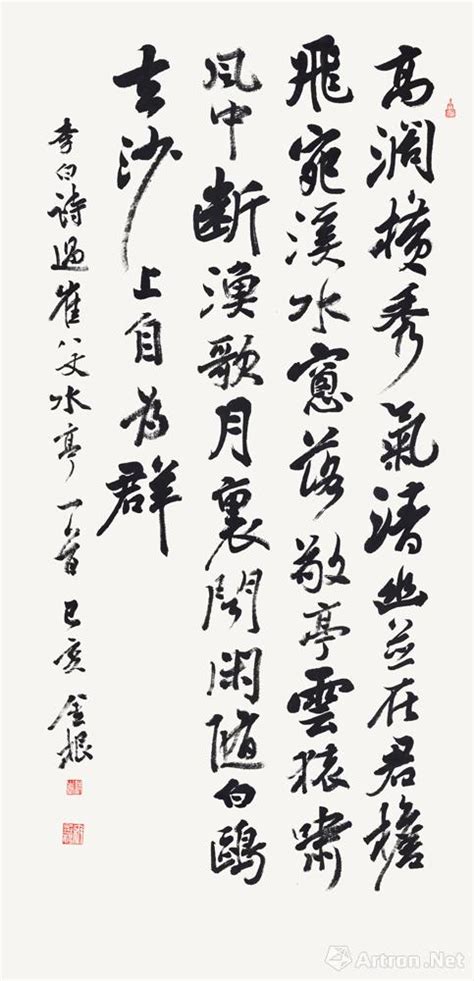 高澗橫秀氣清幽並在君檐
飛宛溪水窻落敬亭雲猿嘯
風中斷漁歌月裏聞閑隨白鷗
去沙上自為群
李白詩過崔八丈水亭一首 己亥 金根
Artron.Net